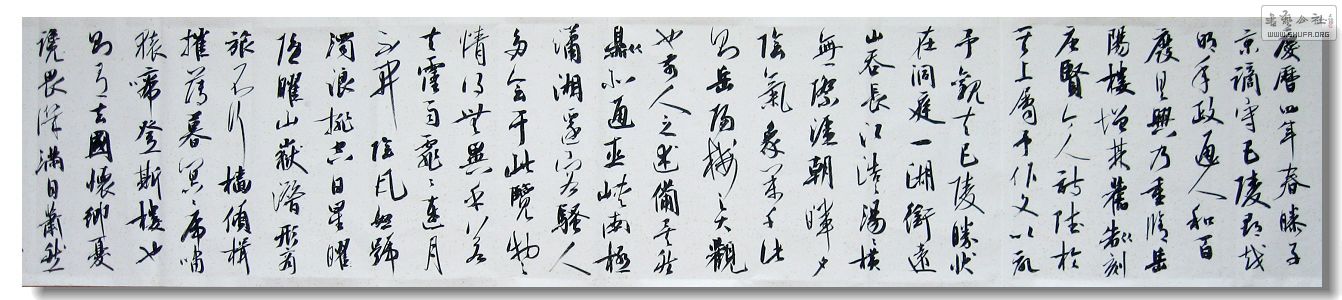 慶曆四年春滕子
京謫守巴陵郡越
明年政通人和百
廢具興乃重修岳
陽樓增其舊制刻
唐賢今人詩賦於
其上屬予作文以記
予觀夫巴陵勝狀
在洞庭一湖銜遠
山吞長江浩浩湯湯橫
無際涯朝暉夕
陰氣象萬千此
則岳陽樓之大觀
也前人之述備矣然
則北通巫峽南極
瀟湘遷客騷人
多會于此覽物之
情得無異乎若
夫霪雨霏霏連月
不開陰風怒號
濁浪排空日星曜
隱曜山嶽潛形商
旅不行檣傾楫
摧薄暮冥冥虎嘯
猿啼登斯樓也
則有去國懷鄉憂
讒畏譏滿目蕭然
書藝公社
WWW.SHUFA.ORG